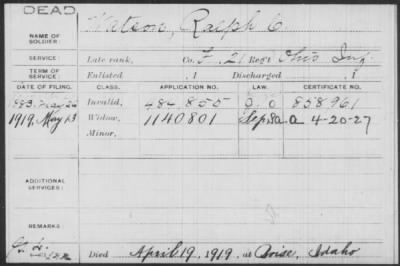 DEAD
NAME OF SOLDIER: Watson, Ralph C.
SERVICE: Late rank, Co. F. 21 Reg't Ohio Inf.
TERM OF SERVICE: Enlisted , 1 Discharged , 1
DATE OF FILING. CLASS. APPLICATION NO. LAW. CERTIFICATE NO.
1883, May 22 Invalid, 484855 858961
1919, May 13 Widow, 1140801 Sep 8a. a 4-20-27
Minor,
ADDITIONAL SERVICES:
REMARKS:
Died April 19, 1919, at Boise, Idaho